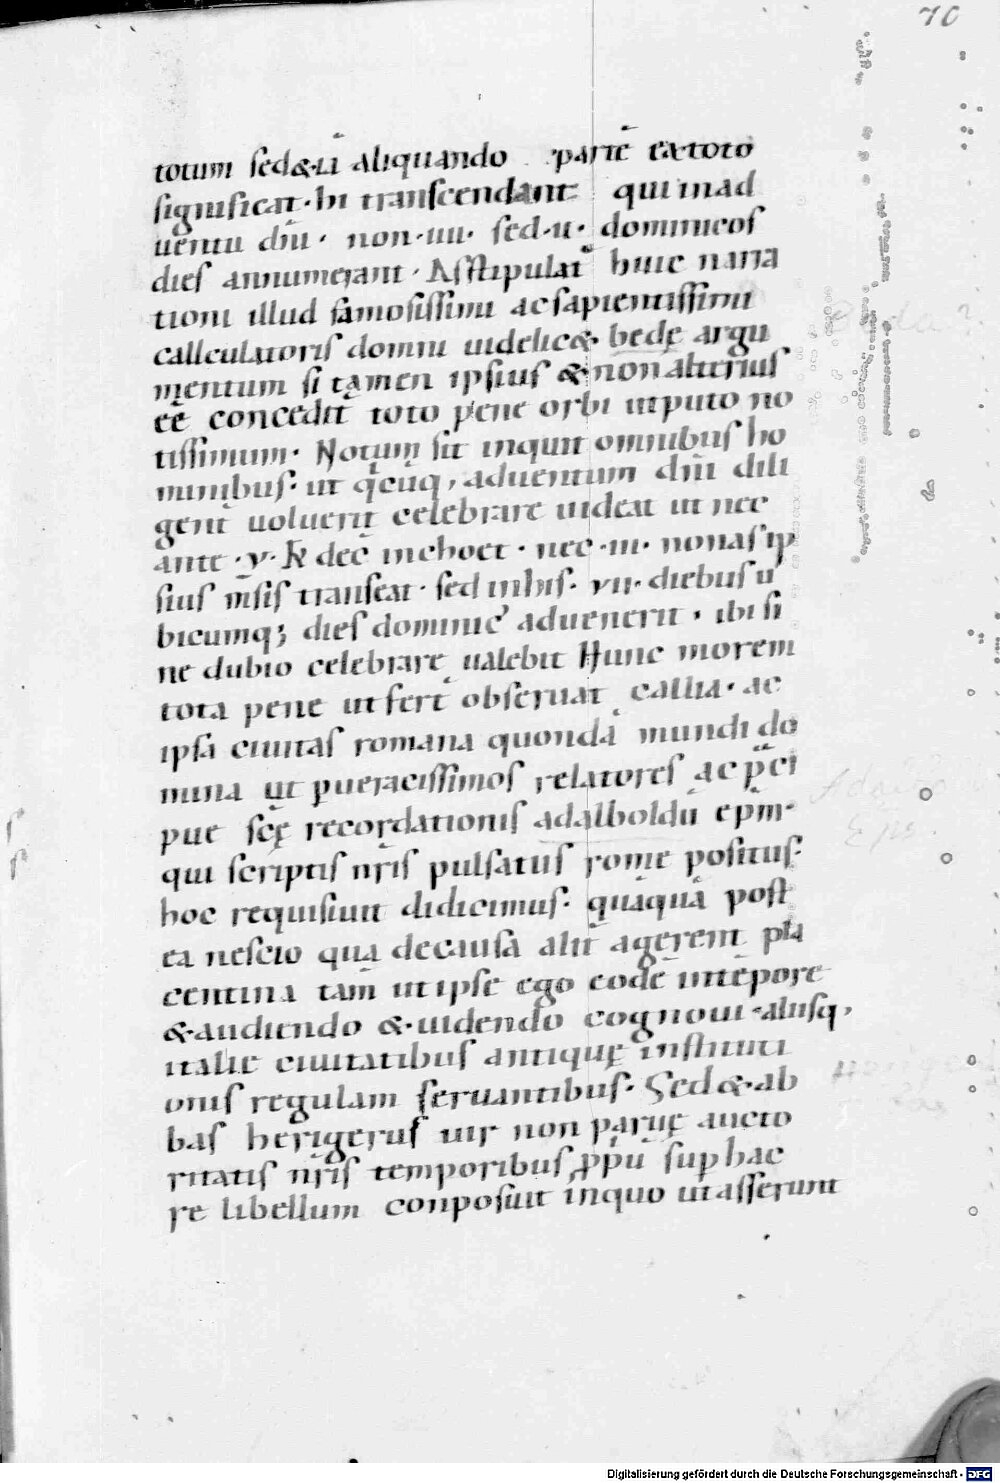 70
totum sed &iā aliquando partē ex toto
significat. Hi transcendant qui in ad
uentu dn̄i. non .iiii. sed .u. dominicos
dies annumerant. Astipulat huic narra
tioni illud famosissimi ac sapientissimi
callculatoris domni uidelic& bedę argu
mentum si tamen ipsius & non alterius
eē concedit toto pene orbi ut puto no
tissimum. Notum sit inquit omnibus ho
minibus. ut q̄cuq, aduentum dn̄i dili
gent uoluerit celebrare uideat ut nec
ante .v. k̄ dec̄ inchoet. nec .iii. nonas ip
sius m̄sis transeat. sed in his .vii. diebus u
bicumq; dies dominic' aduenerit. ibi si
ne dubio celebrare ualebit Hunc morem
tota pene ut fert obseruat gallia. ac
ipsa ciuitas romana quondā mundi do
mina ut p ueracissimos relatores ac p̄ci
pue scę recordationis adalboldū ep̄m.
qui scriptis nr̄is pulsatus rome positus.
hoc requisiuit didicimus. quāquā post
ea nescio qua de causa alit̄ agerent pla
centina tam̄ ut ipse ego eodē in tēpore
& audiendo & uidendo cognoui aliisq,
italie ciuitatibus antiquę instituti
onis regulam seruantibus. Sed & ab
bas herigerus uir non paruę aucto
ritatis nr̄is temporibus p̄p̄u sup hac
re libellum conposuit in quo ut asserunt
Digitalisierung gefördert durch die Deutsche Forschungsgemeinschaft - DFG